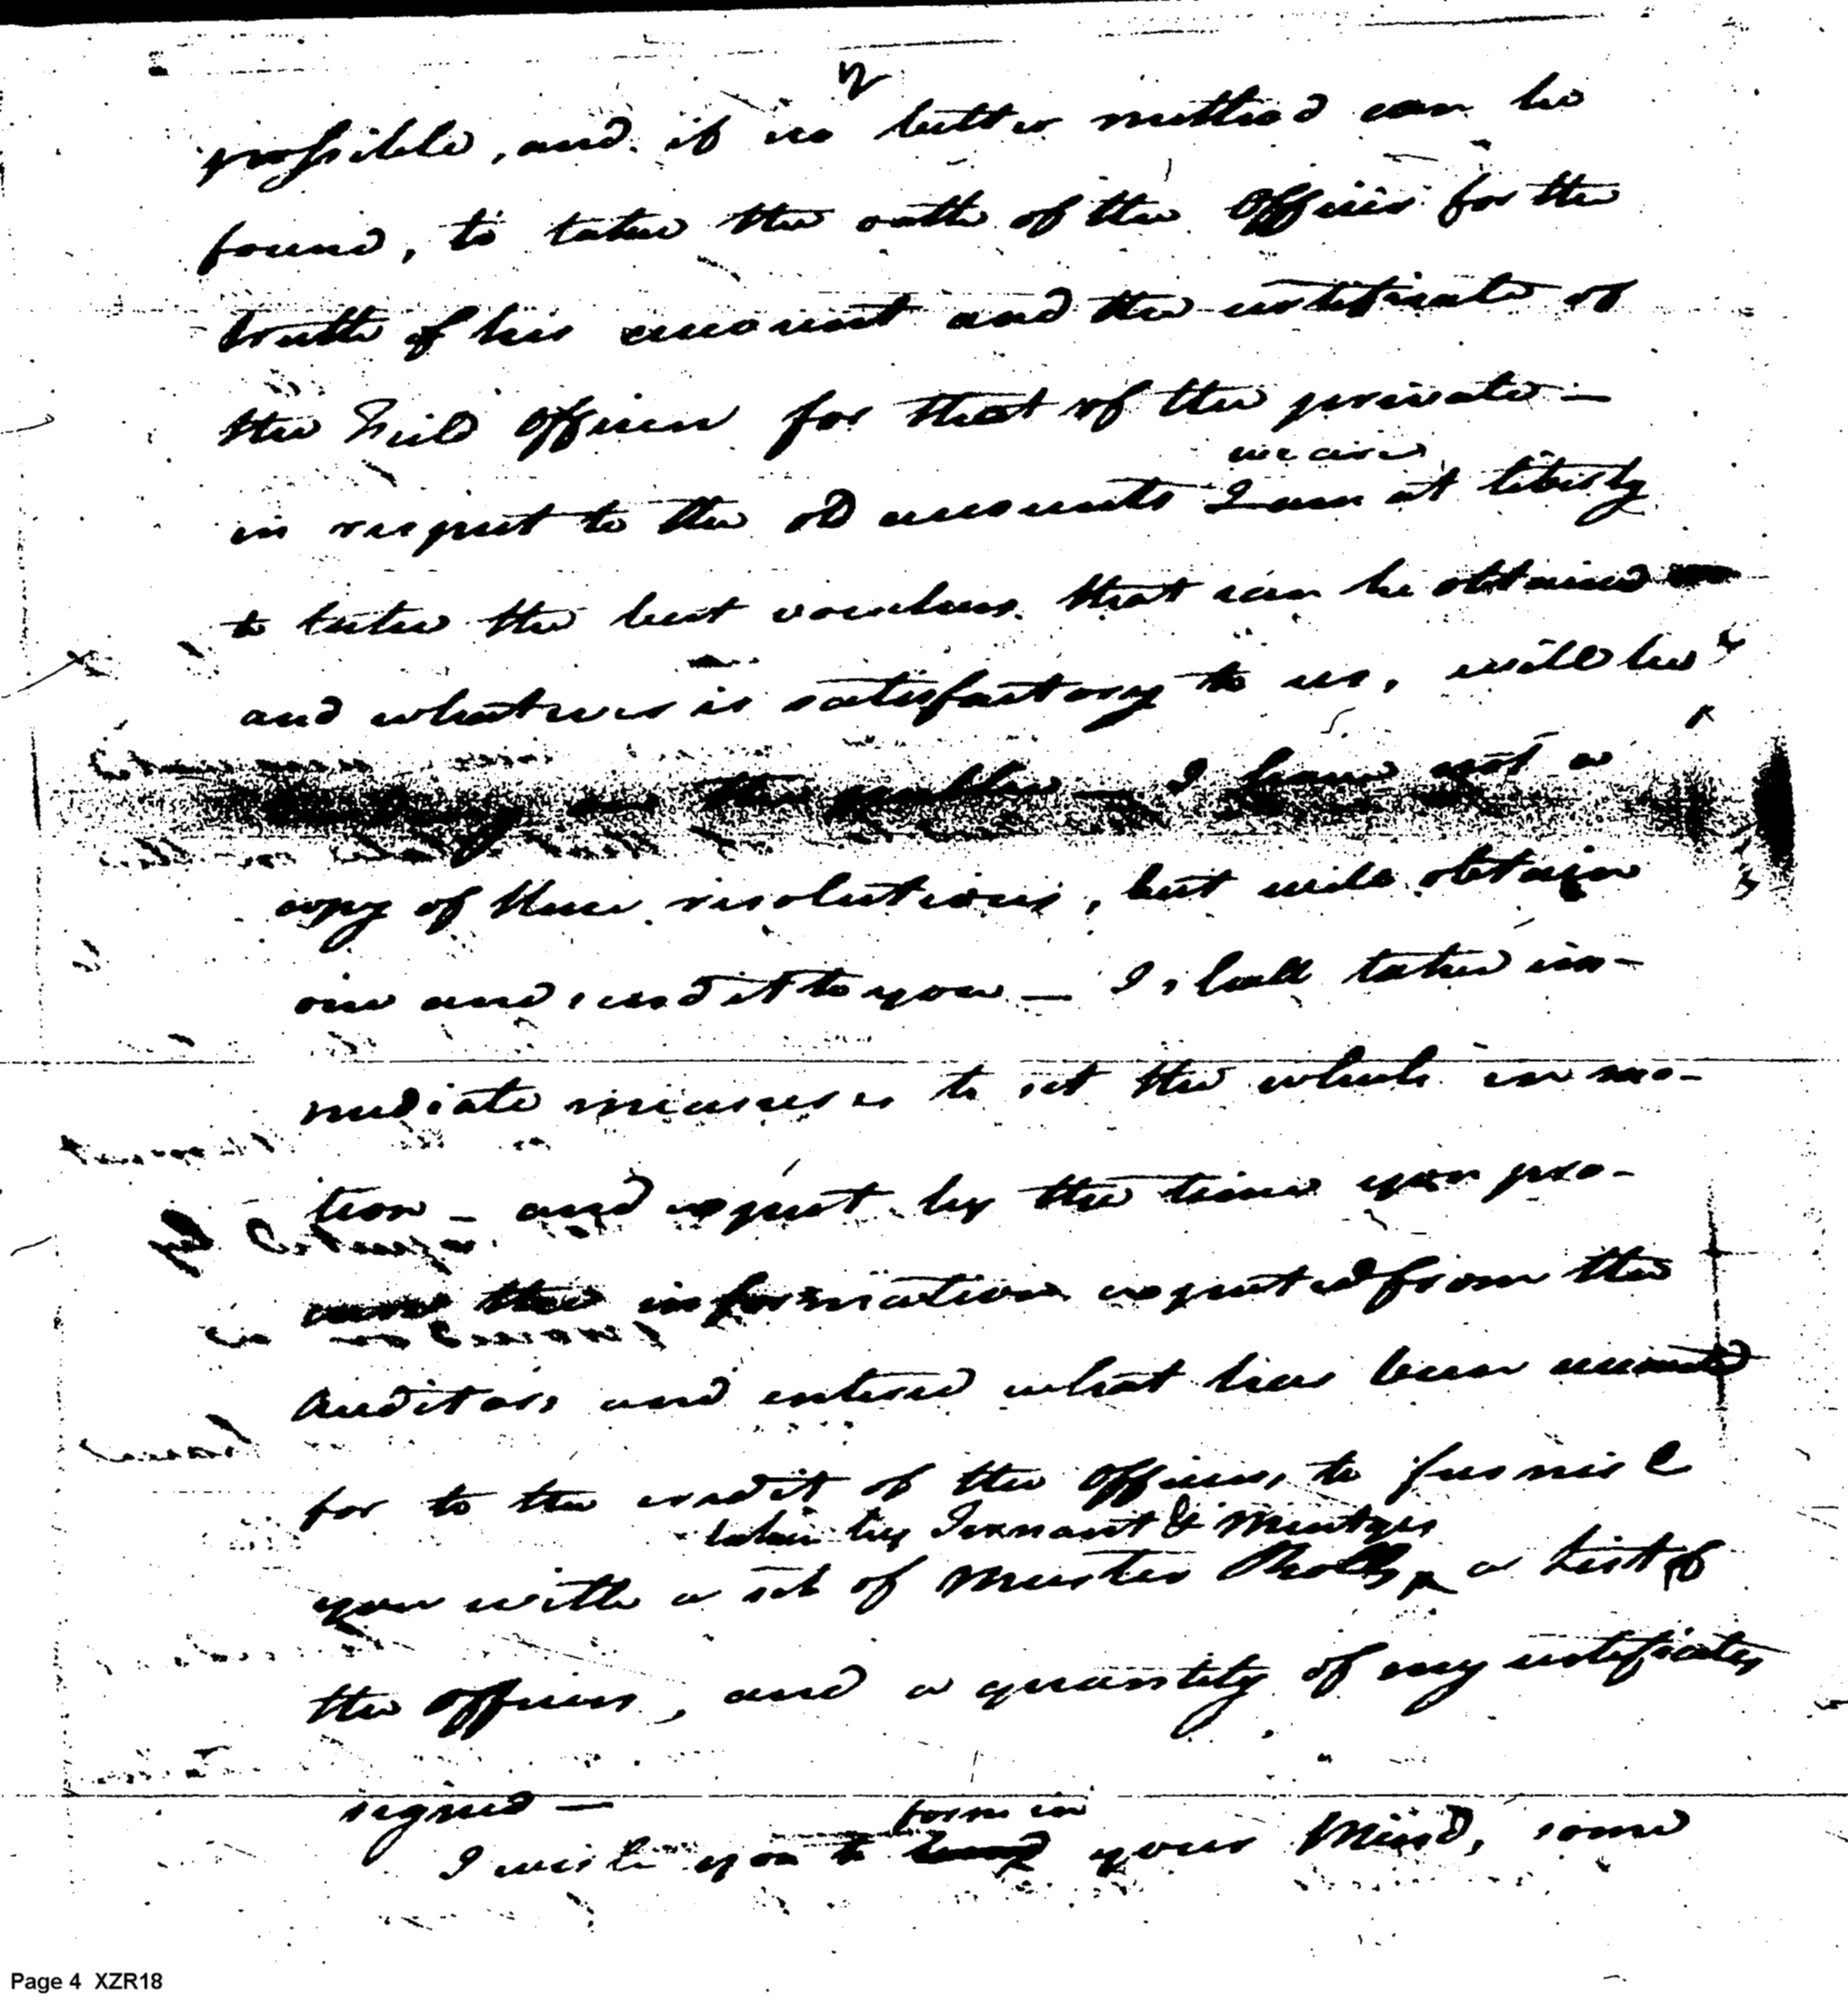 2
possible, and if no better method can be
found, to take the oath of the Officer for the
truth of his account and the certificate of
the Field Officer for that of the private —
we are
in respect to the old accounts I am at liberty
to take the best vouchers that can be obtained
and whatever is satisfactory to us, will be
on the public — I have not a
copy of these resolutions, but will obtain
one and send it to you — I shall take im-
mediate measures to set the whole in mo-
tion — and expect by the time you pro-
cure the information expected from the
Auditors and entered what has been accounted
for to the credit of the Officers, to furnish
taken by Ternant & Mentges
you with a set of Muster Rolls, a List of
the officers, and a quantity of my certificates
signed —
form in
I wish you to your Mind, some
Page 4 XZR18